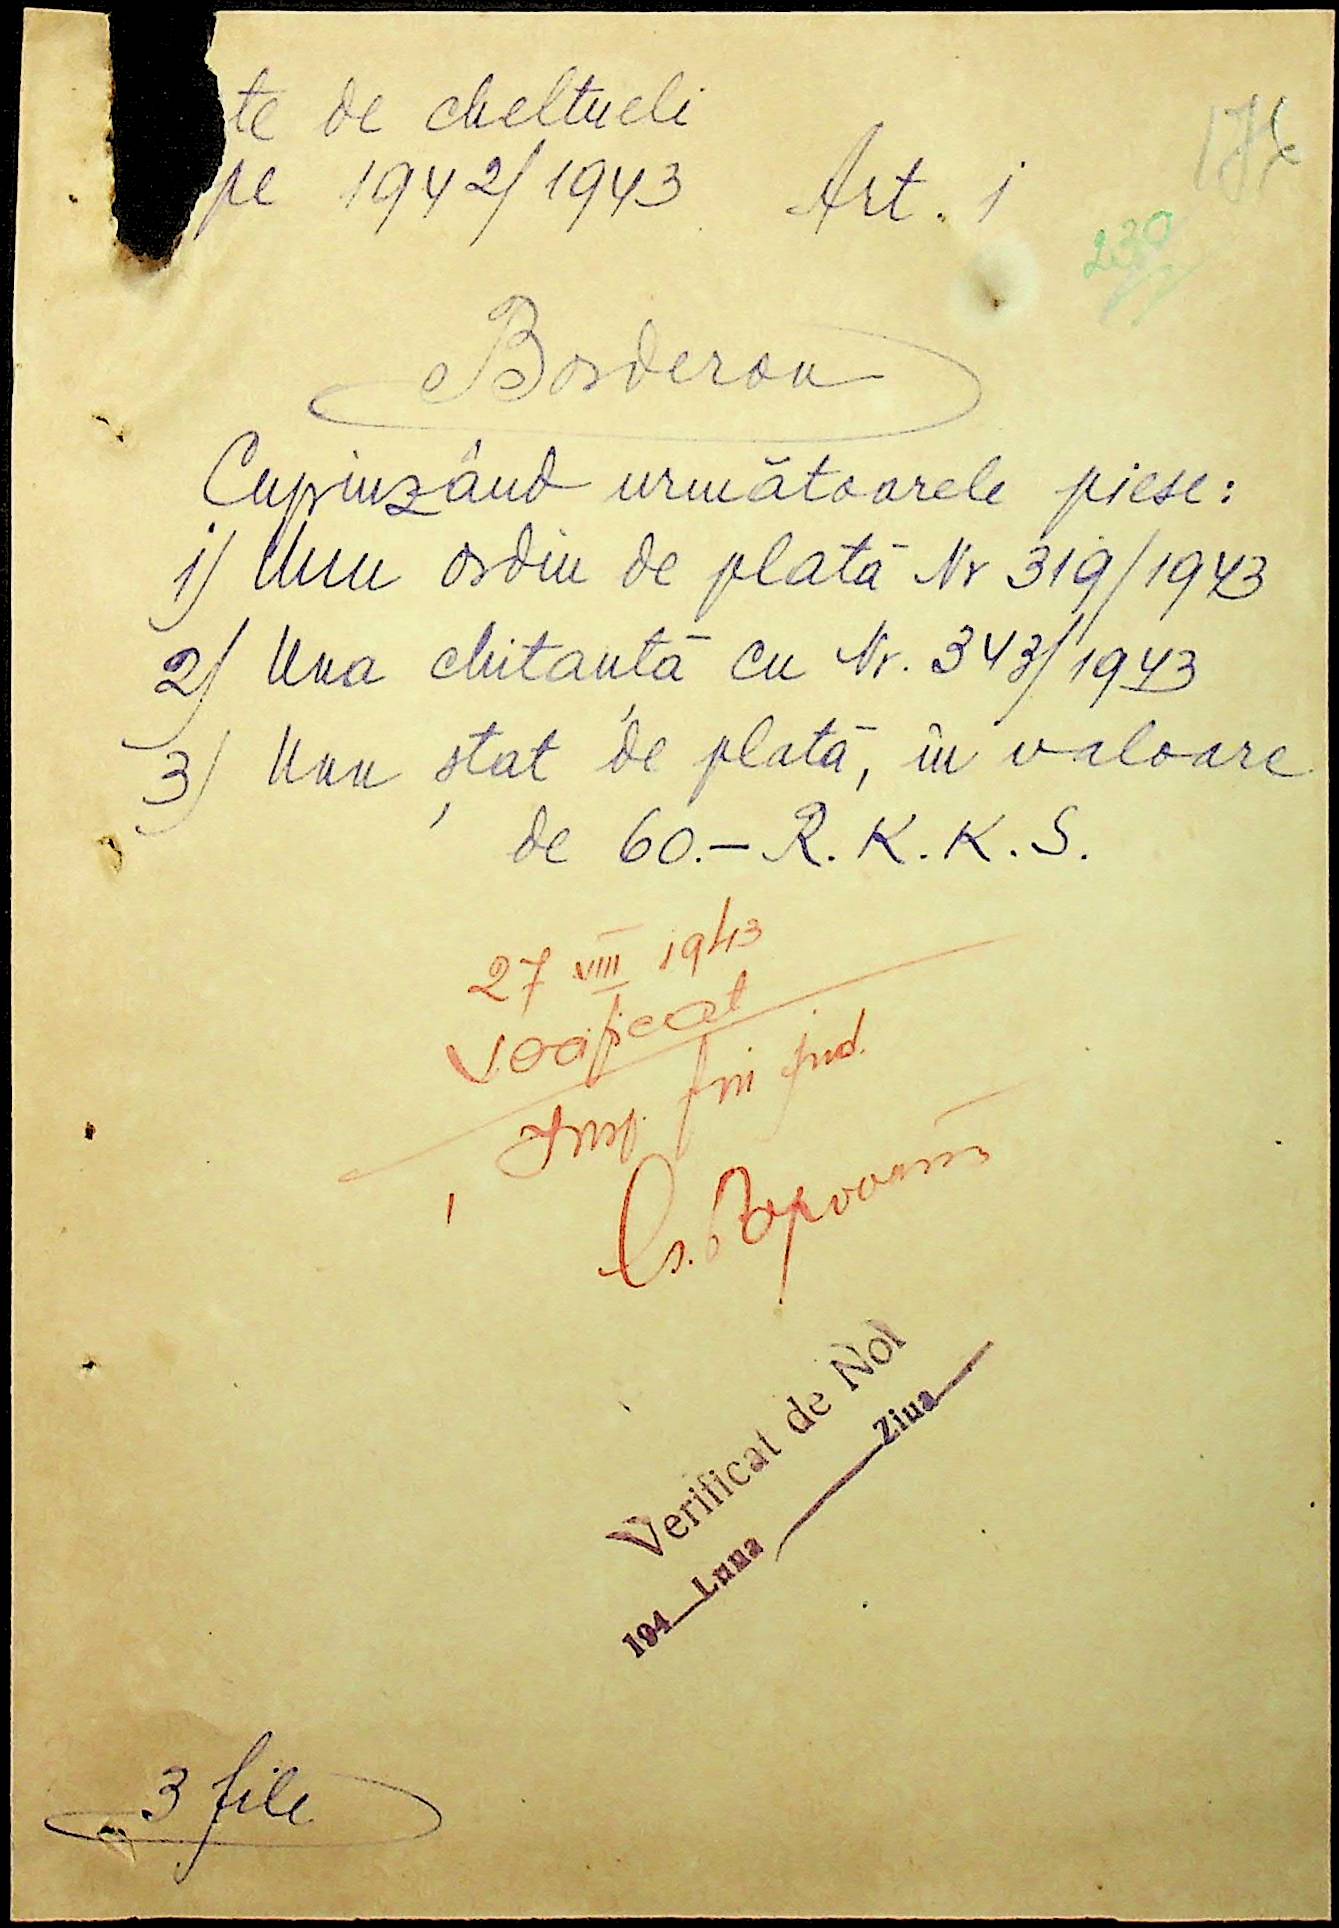 te de cheltueli
pe 1942/1943 Art. 1
230
Borderou
Cuprinzând următoarele piese:
1) Unu ordin de plată Nr 319/1943
2) Una chitanță cu Nr. 343/1943
3) Unu ștat de plată, în valoare
de 60.- R.K.K.S.
27 VIII 1943
Verificat
Insp. fin jud.
Verificat de Noi
194 Luna Ziua
3 file